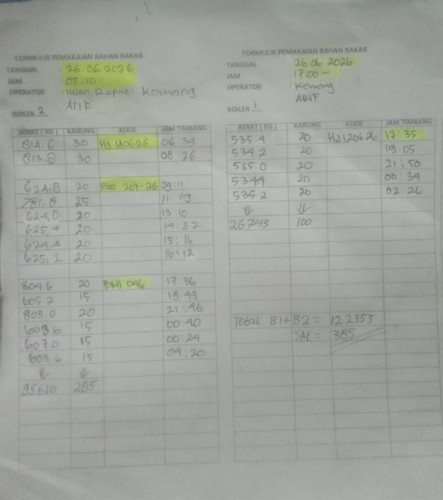 FORMULIR PEMAKAIAN BAHAN BAKAR
TANGGAL 26.06.2026
JAM 07.10-
OPERATOR Iwan Kowong
ARIF
BOILER 2
BERAT (KG) KARUNG KODE JAM TIMBANG
814.6 30 06 39
813.8 30 08 26
624.8 20 09 11
781.8 25 11 19
624.0 20 13 10
625.4 20 14 32
624.4 20 15:16
625.2 20 16:12
804.6 20 17 36
605.2 15 19 49
803.0 20 21:46
15 00:40
607.0 15 00:24
603.6 15 04:20
95610 285
FORMULIR PEMAKAIAN BAHAN BAKAR
TANGGAL 26.06 2026
JAM 17.00-
OPERATOR Kowong
ARIF
BOILER 1
BERAT (KG) KARUNG KODE JAM TIMBANG
535.4 20 17:35
534.2 20 19 05
535.0 20 21:50
534.4 20 00:34
535.2 20 02 26
26743 100
Total B1+B2 = 122353
= 385